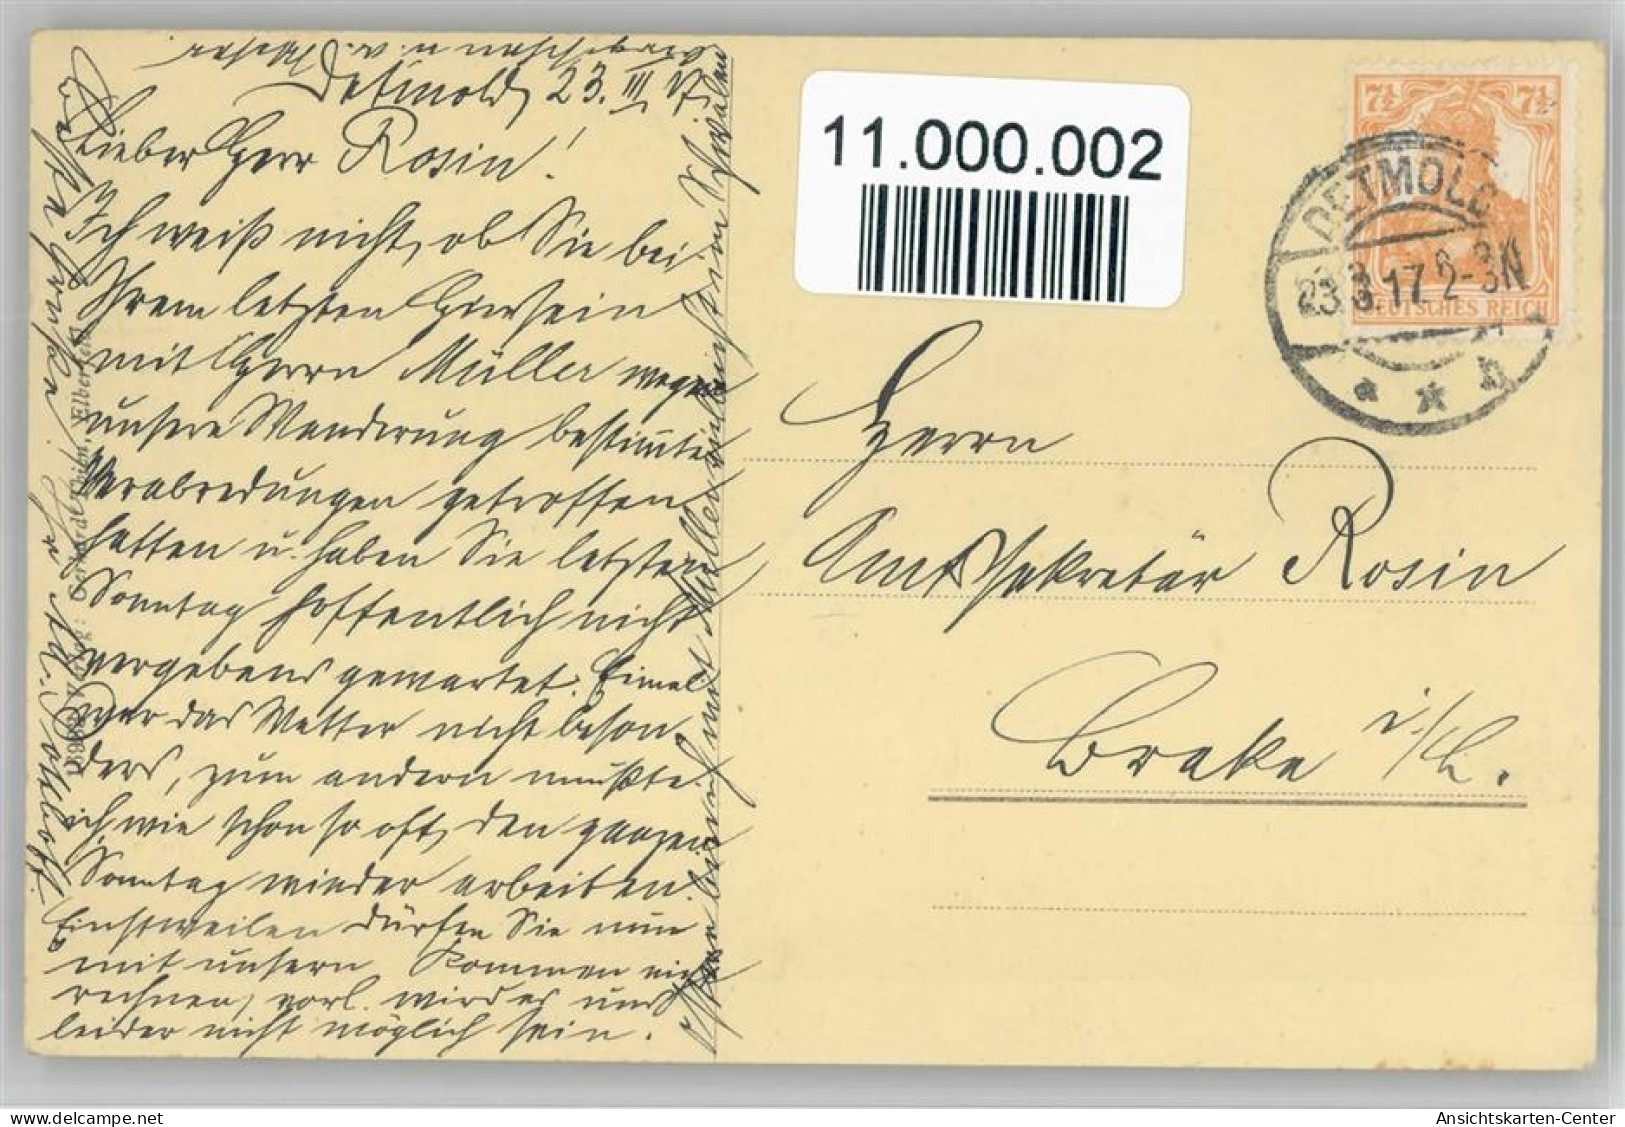 Detmold, 23. III. 17.
Lieber Herr Rosin!
Ich weiß nicht, ob Sie bei
Ihrem letzten Hiersein
mit Herrn Müller wegen
unsere Wanderung bestimmte
Verabredungen getroffen
hatten u. haben Sie letzten
Sonntag hoffentlich nicht
vergebens gewartet. Einmal
war das Wetter nicht beson-
ders, zum andern mußte
ich, wie schon so oft, den ganzen
Sonntag wieder arbeiten.
Einstweilen dürfen Sie nun
mit unserm Kommen nicht
rechnen, vorl. wird es uns
leider nicht möglich sein.
Verlag: Gerhardt Thien, Elberfeld
11.000.002
7½ 7½
DEUTSCHES REICH
DETMOLD
23.3.17. 2-3N
Herrn
Amtssekretär Rosin
Brake i/L.
Ansichtskarten-Center
https://www.ansichtskarten-center.de/